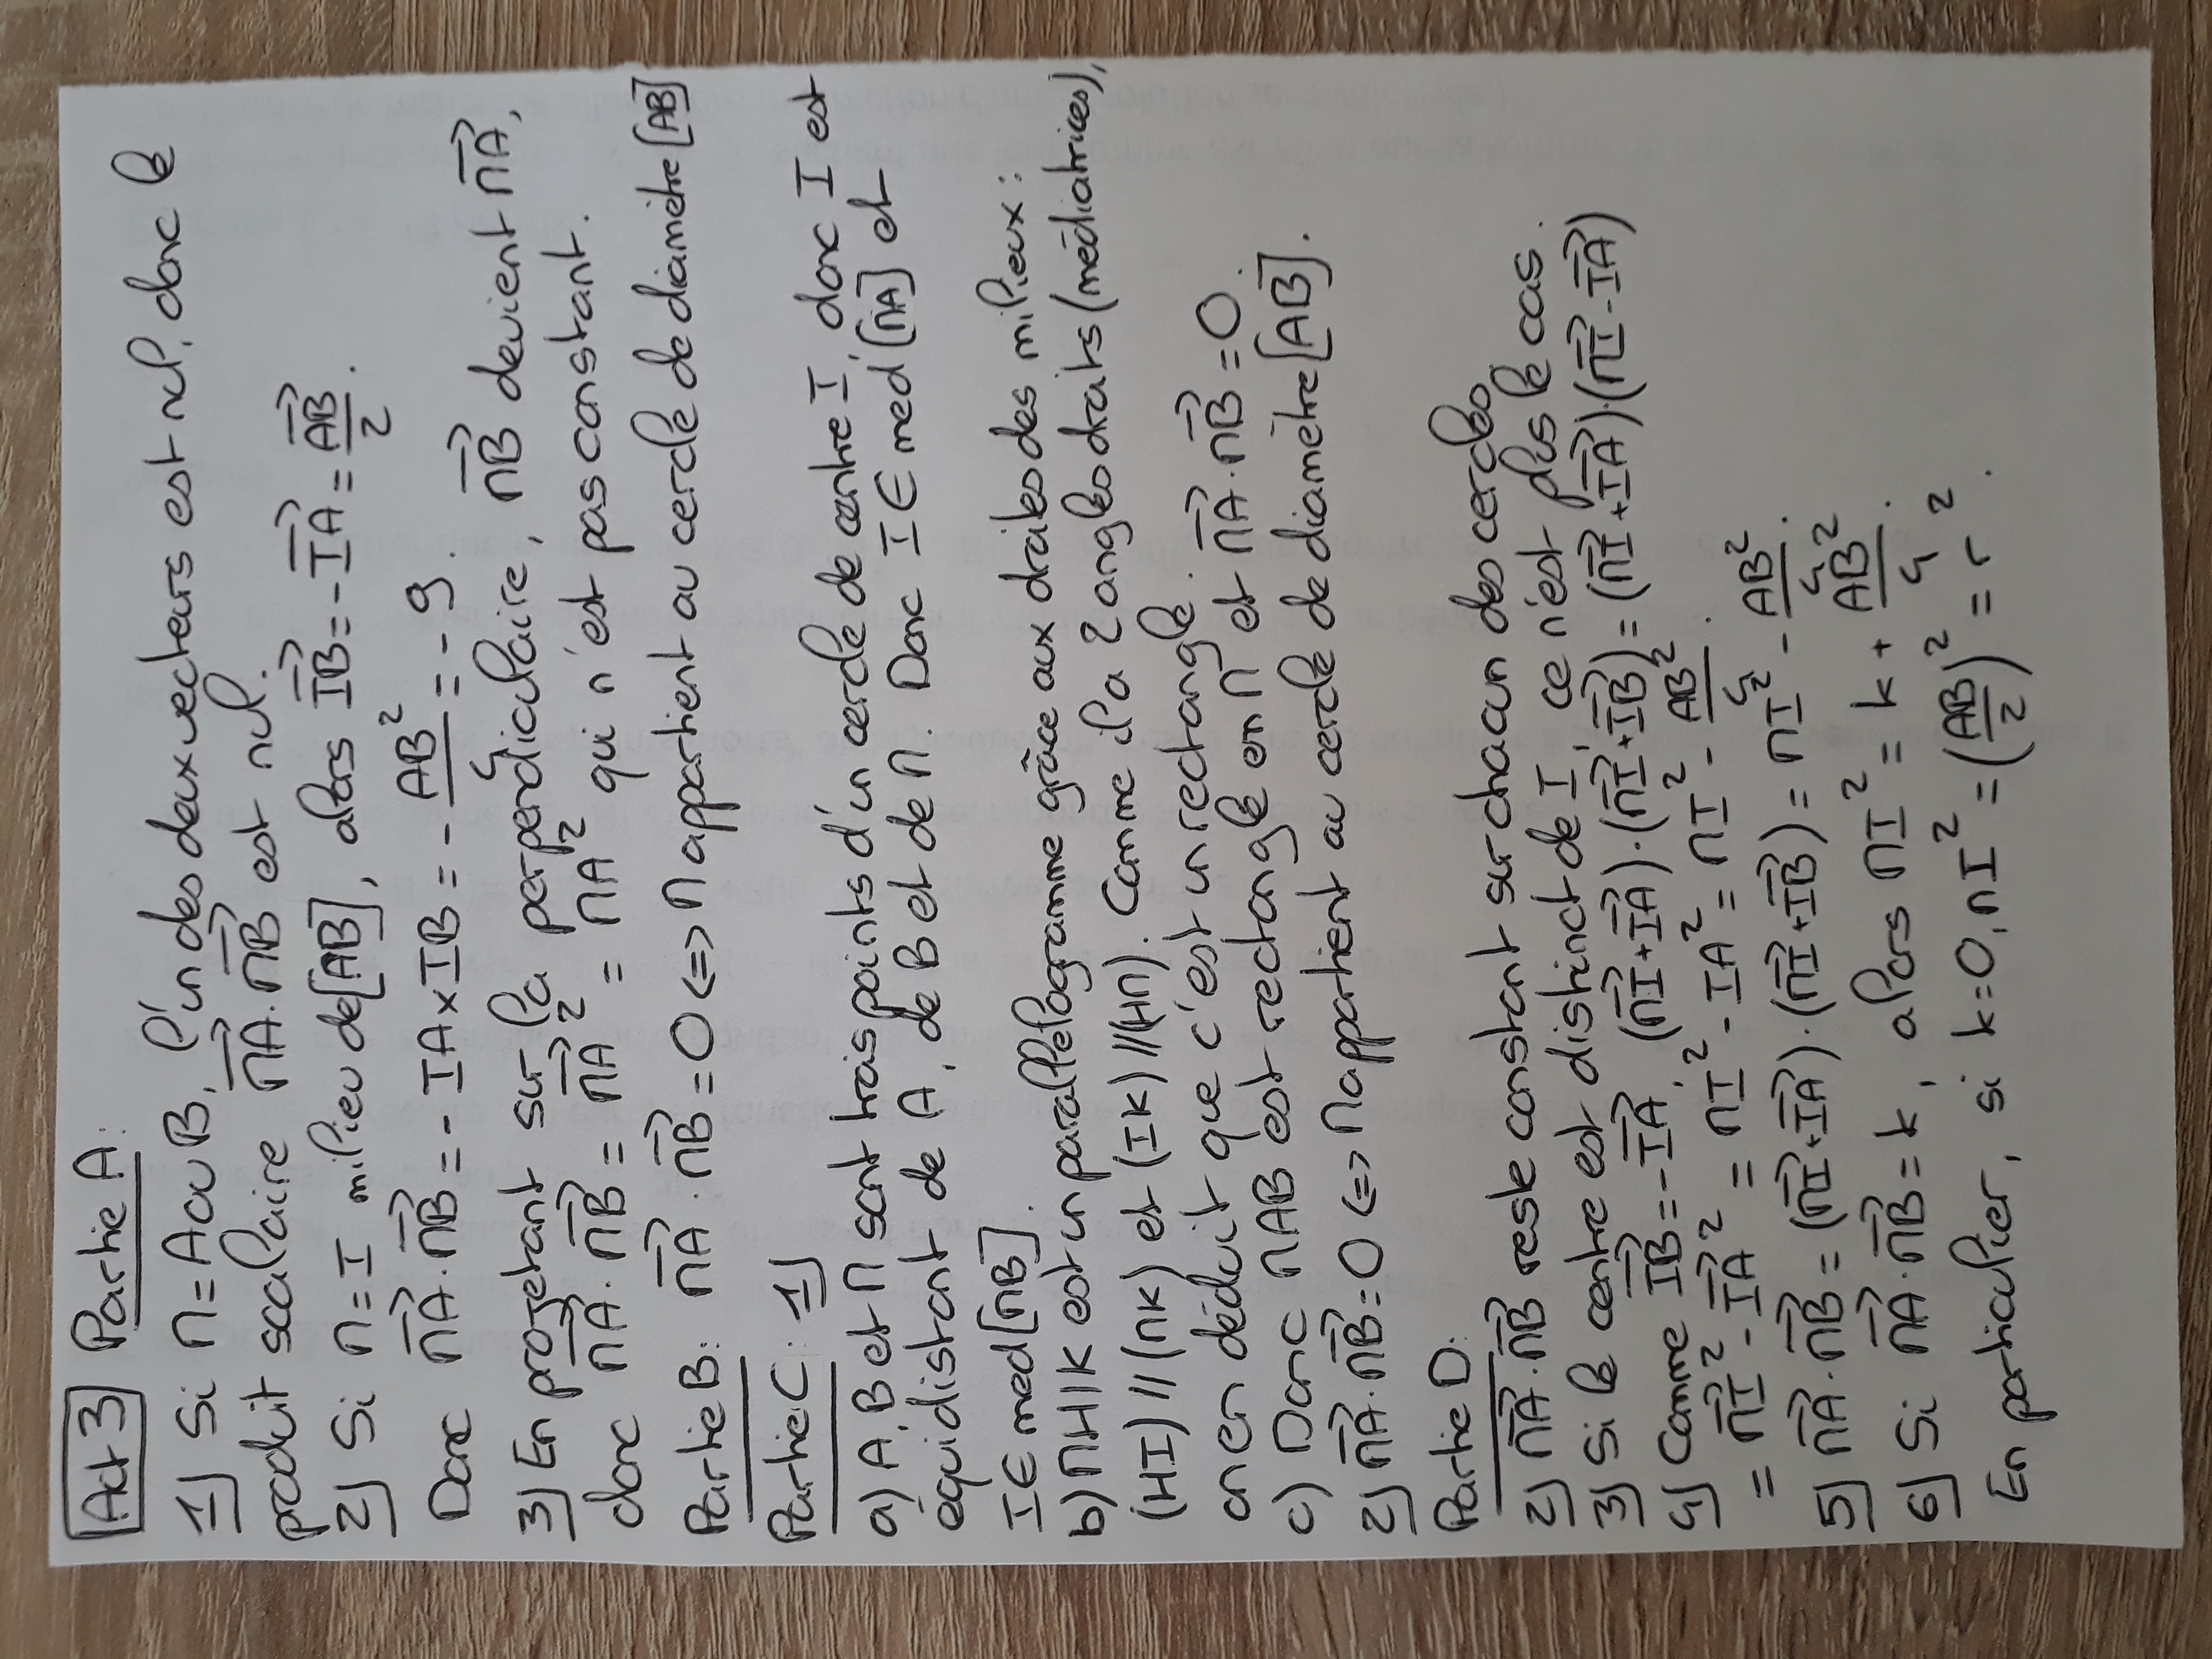 Act 3 Partie A :
1) Si M = A ou B, l'un des deux vecteurs est nul, donc le
produit scalaire $\overrightarrow{MA}.\overrightarrow{MB}$ est nul.
2) Si M = I milieu de [AB], alors $\overrightarrow{IB} = -\overrightarrow{IA} = \frac{\overrightarrow{AB}}{2}$.
Donc $\overrightarrow{MA}.\overrightarrow{MB} = -IA \times IB = -\frac{AB^2}{4} = -9$.
3) En projetant sur la perpendiculaire, $\overrightarrow{MB}$ devient $\overrightarrow{MA}$,
donc $\overrightarrow{MA}.\overrightarrow{MB} = \overrightarrow{MA}^2 = MA^2$ qui n'est pas constant.
Partie B : $\overrightarrow{MA}.\overrightarrow{MB} = 0 \Leftrightarrow$ M appartient au cercle de diamètre [AB]
Partie C : 1)
a) A, B et M sont trois points d'un cercle de centre I, donc I est
équidistant de A, de B et de M. Donc I ∈ med [MA] et
I ∈ med [MB].
b) MHIK est un parallélogramme grâce aux droites des milieux :
(HI) // (MK) et (IK) // (HM). Comme il a 2 angles droits (médiatrices),
on en déduit que c'est un rectangle.
c) Donc MAB est rectangle en M et $\overrightarrow{MA}.\overrightarrow{MB} = 0$.
2) $\overrightarrow{MA}.\overrightarrow{MB} = 0 \Leftrightarrow$ M appartient au cercle de diamètre [AB].
Partie D :
2) $\overrightarrow{MA}.\overrightarrow{MB}$ reste constant sur chacun des cercles.
3) Si le centre est distinct de I, ce n'est plus le cas.
4) Comme $\overrightarrow{IB} = -\overrightarrow{IA}$, $(\overrightarrow{MI}+\overrightarrow{IA}).(\overrightarrow{MI}+\overrightarrow{IB}) = (\overrightarrow{MI}+\overrightarrow{IA}).(\overrightarrow{MI}-\overrightarrow{IA})$
$= \overrightarrow{MI}^2 - \overrightarrow{IA}^2 = MI^2 - IA^2 = MI^2 - \frac{AB^2}{4}$.
5) $\overrightarrow{MA}.\overrightarrow{MB} = (\overrightarrow{MI}+\overrightarrow{IA}).(\overrightarrow{MI}+\overrightarrow{IB}) = MI^2 - \frac{AB^2}{4}$.
6) Si $\overrightarrow{MA}.\overrightarrow{MB} = k$, alors $MI^2 = k + \frac{AB^2}{4}$.
En particulier, si k = 0, $MI^2 = \left(\frac{AB}{2}\right)^2 = r^2$.